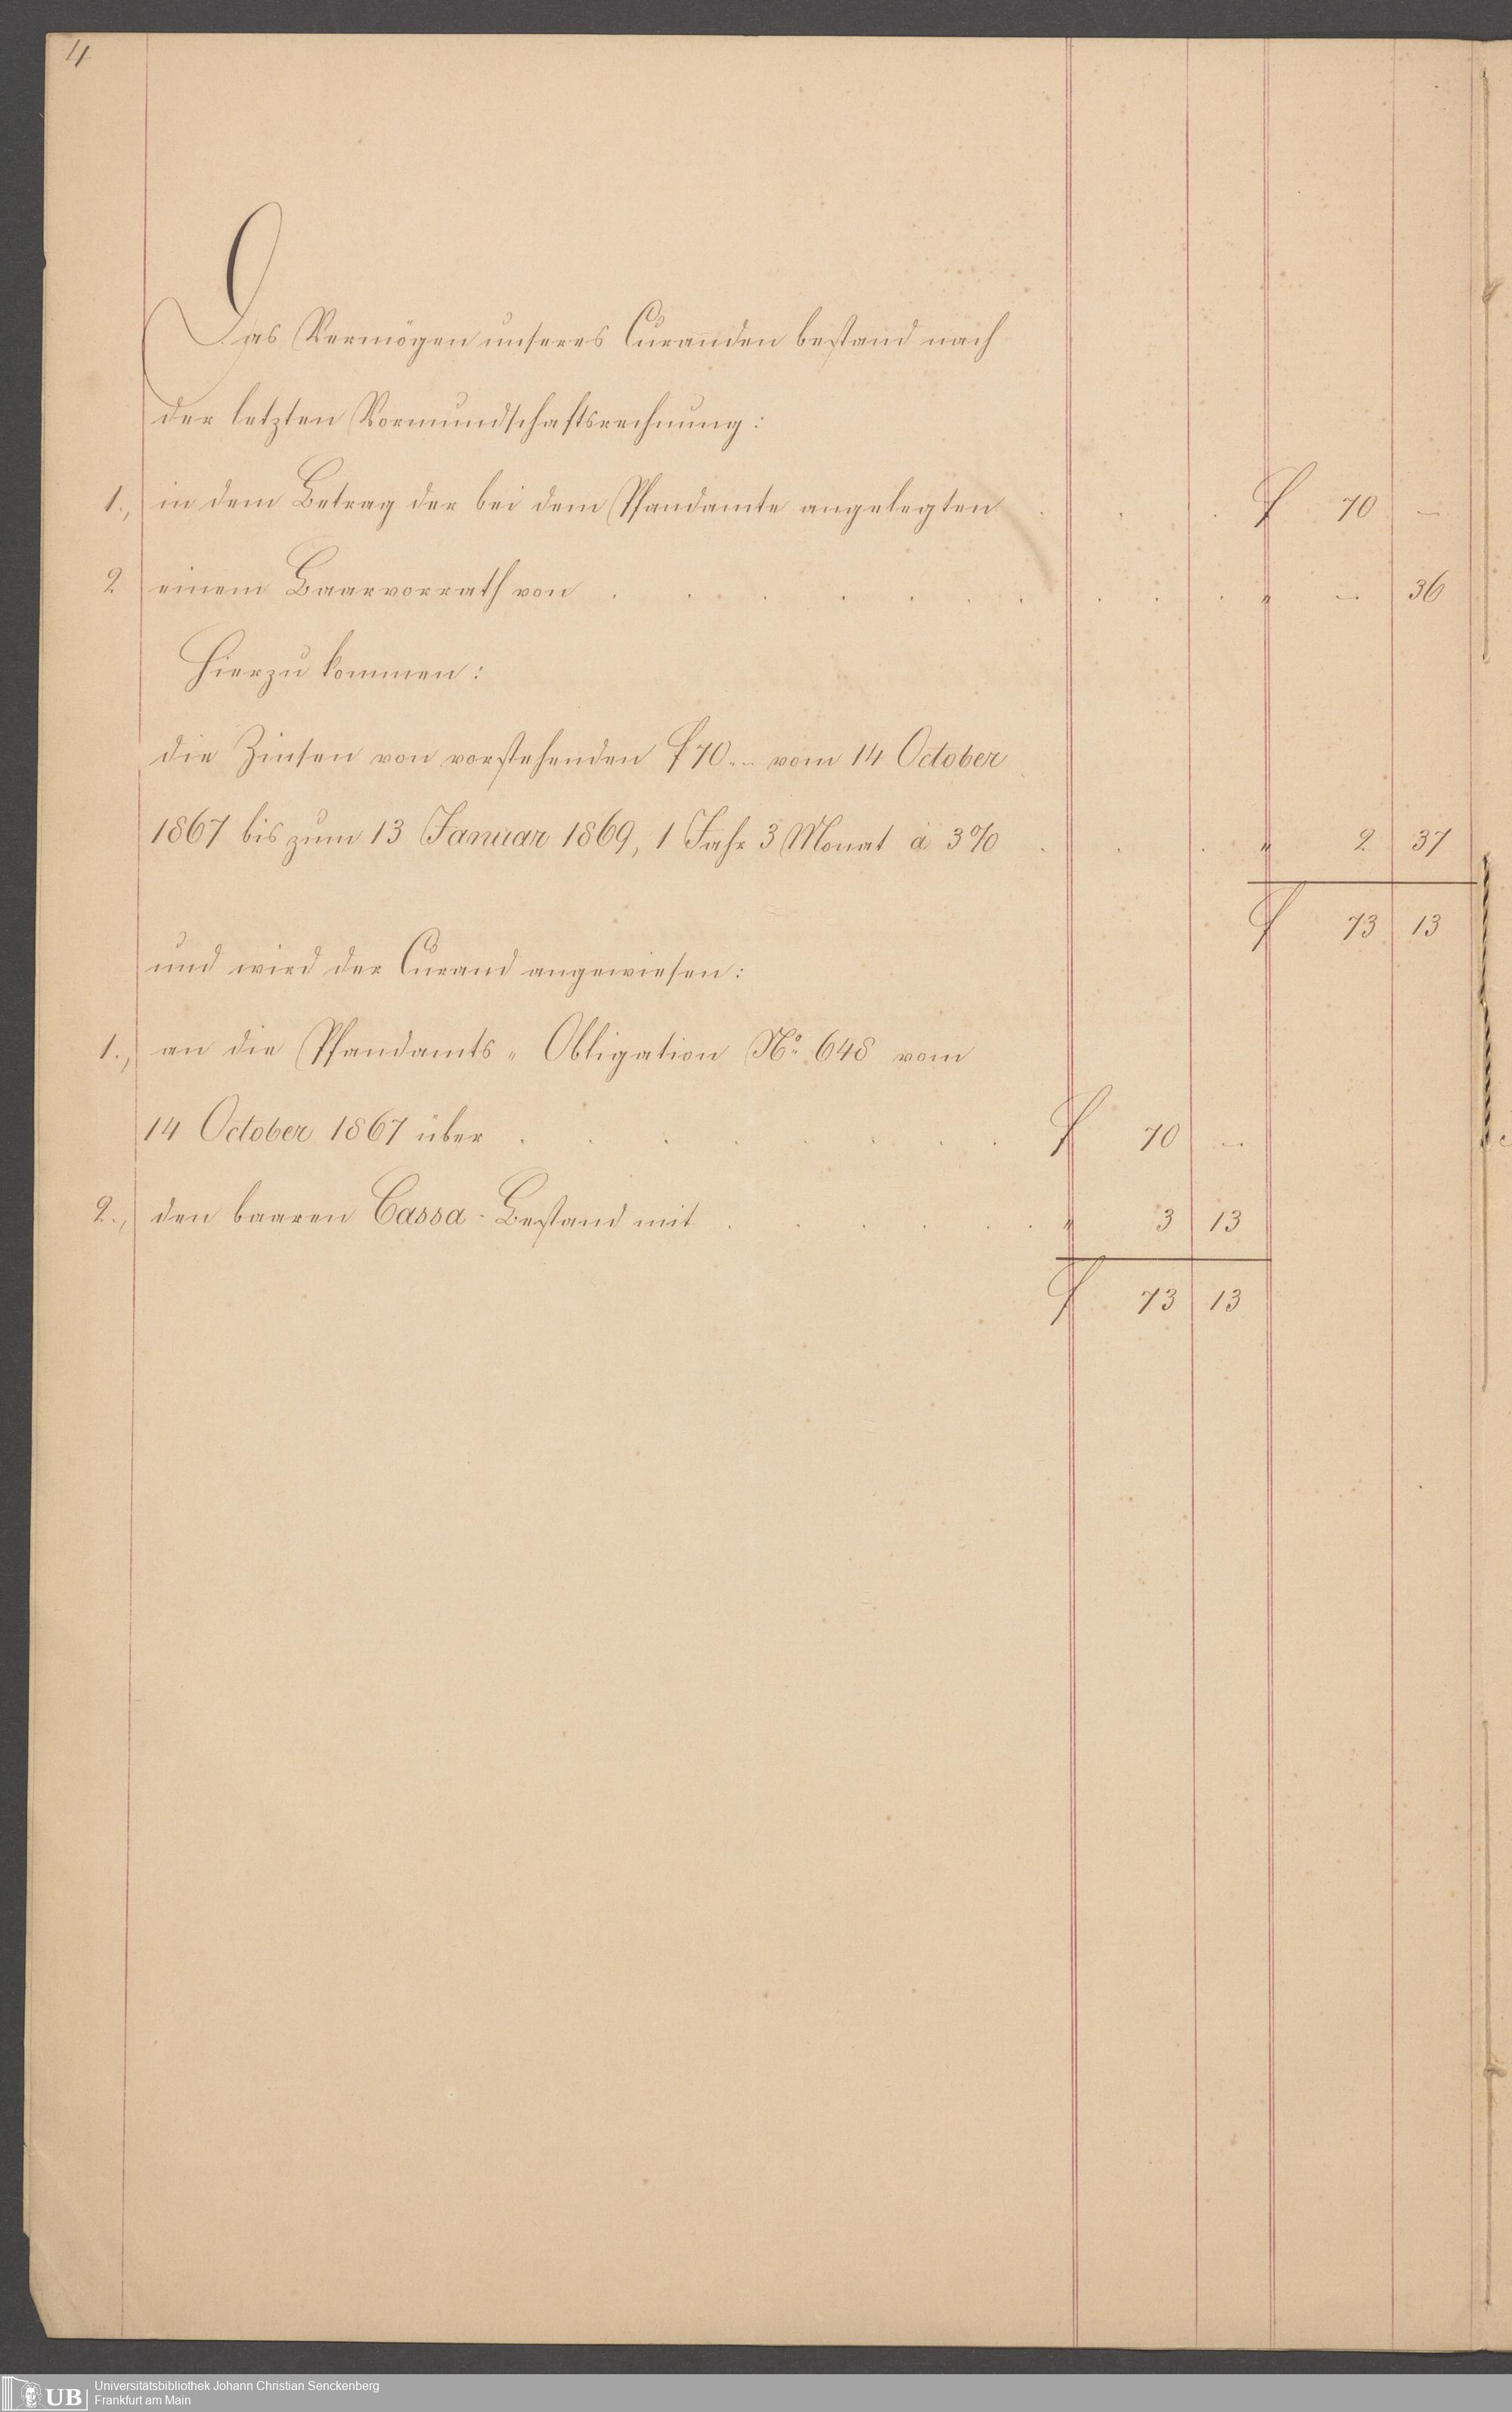 4
Das Vermögen unseres Curanden bestand nach
der letzten Vormundschaftsrechnung:
1., in dem Betrag der bei dem Pfandamte angelegten . . . f 70 —
2 einem Baarvorrath von . . . . . . . . . . " — 36
Hierzu kommen:
die Zinsen von vorstehenden f 70.– vom 14 October
1867 bis zum 13 Januar 1869, 1 Jahr 3 Monat à 3% . . . " 2 37
f 73 13
und wird der Curand angewiesen:
1., an die Pfandamts-Obligation No. 648 vom
14 October 1867 über . . . . . . . . f 70 —
2., den baaren Cassa-Bestand mit . . . . . . " 3 13
f 73 13
UB Universitätsbibliothek Johann Christian Senckenberg
Frankfurt am Main